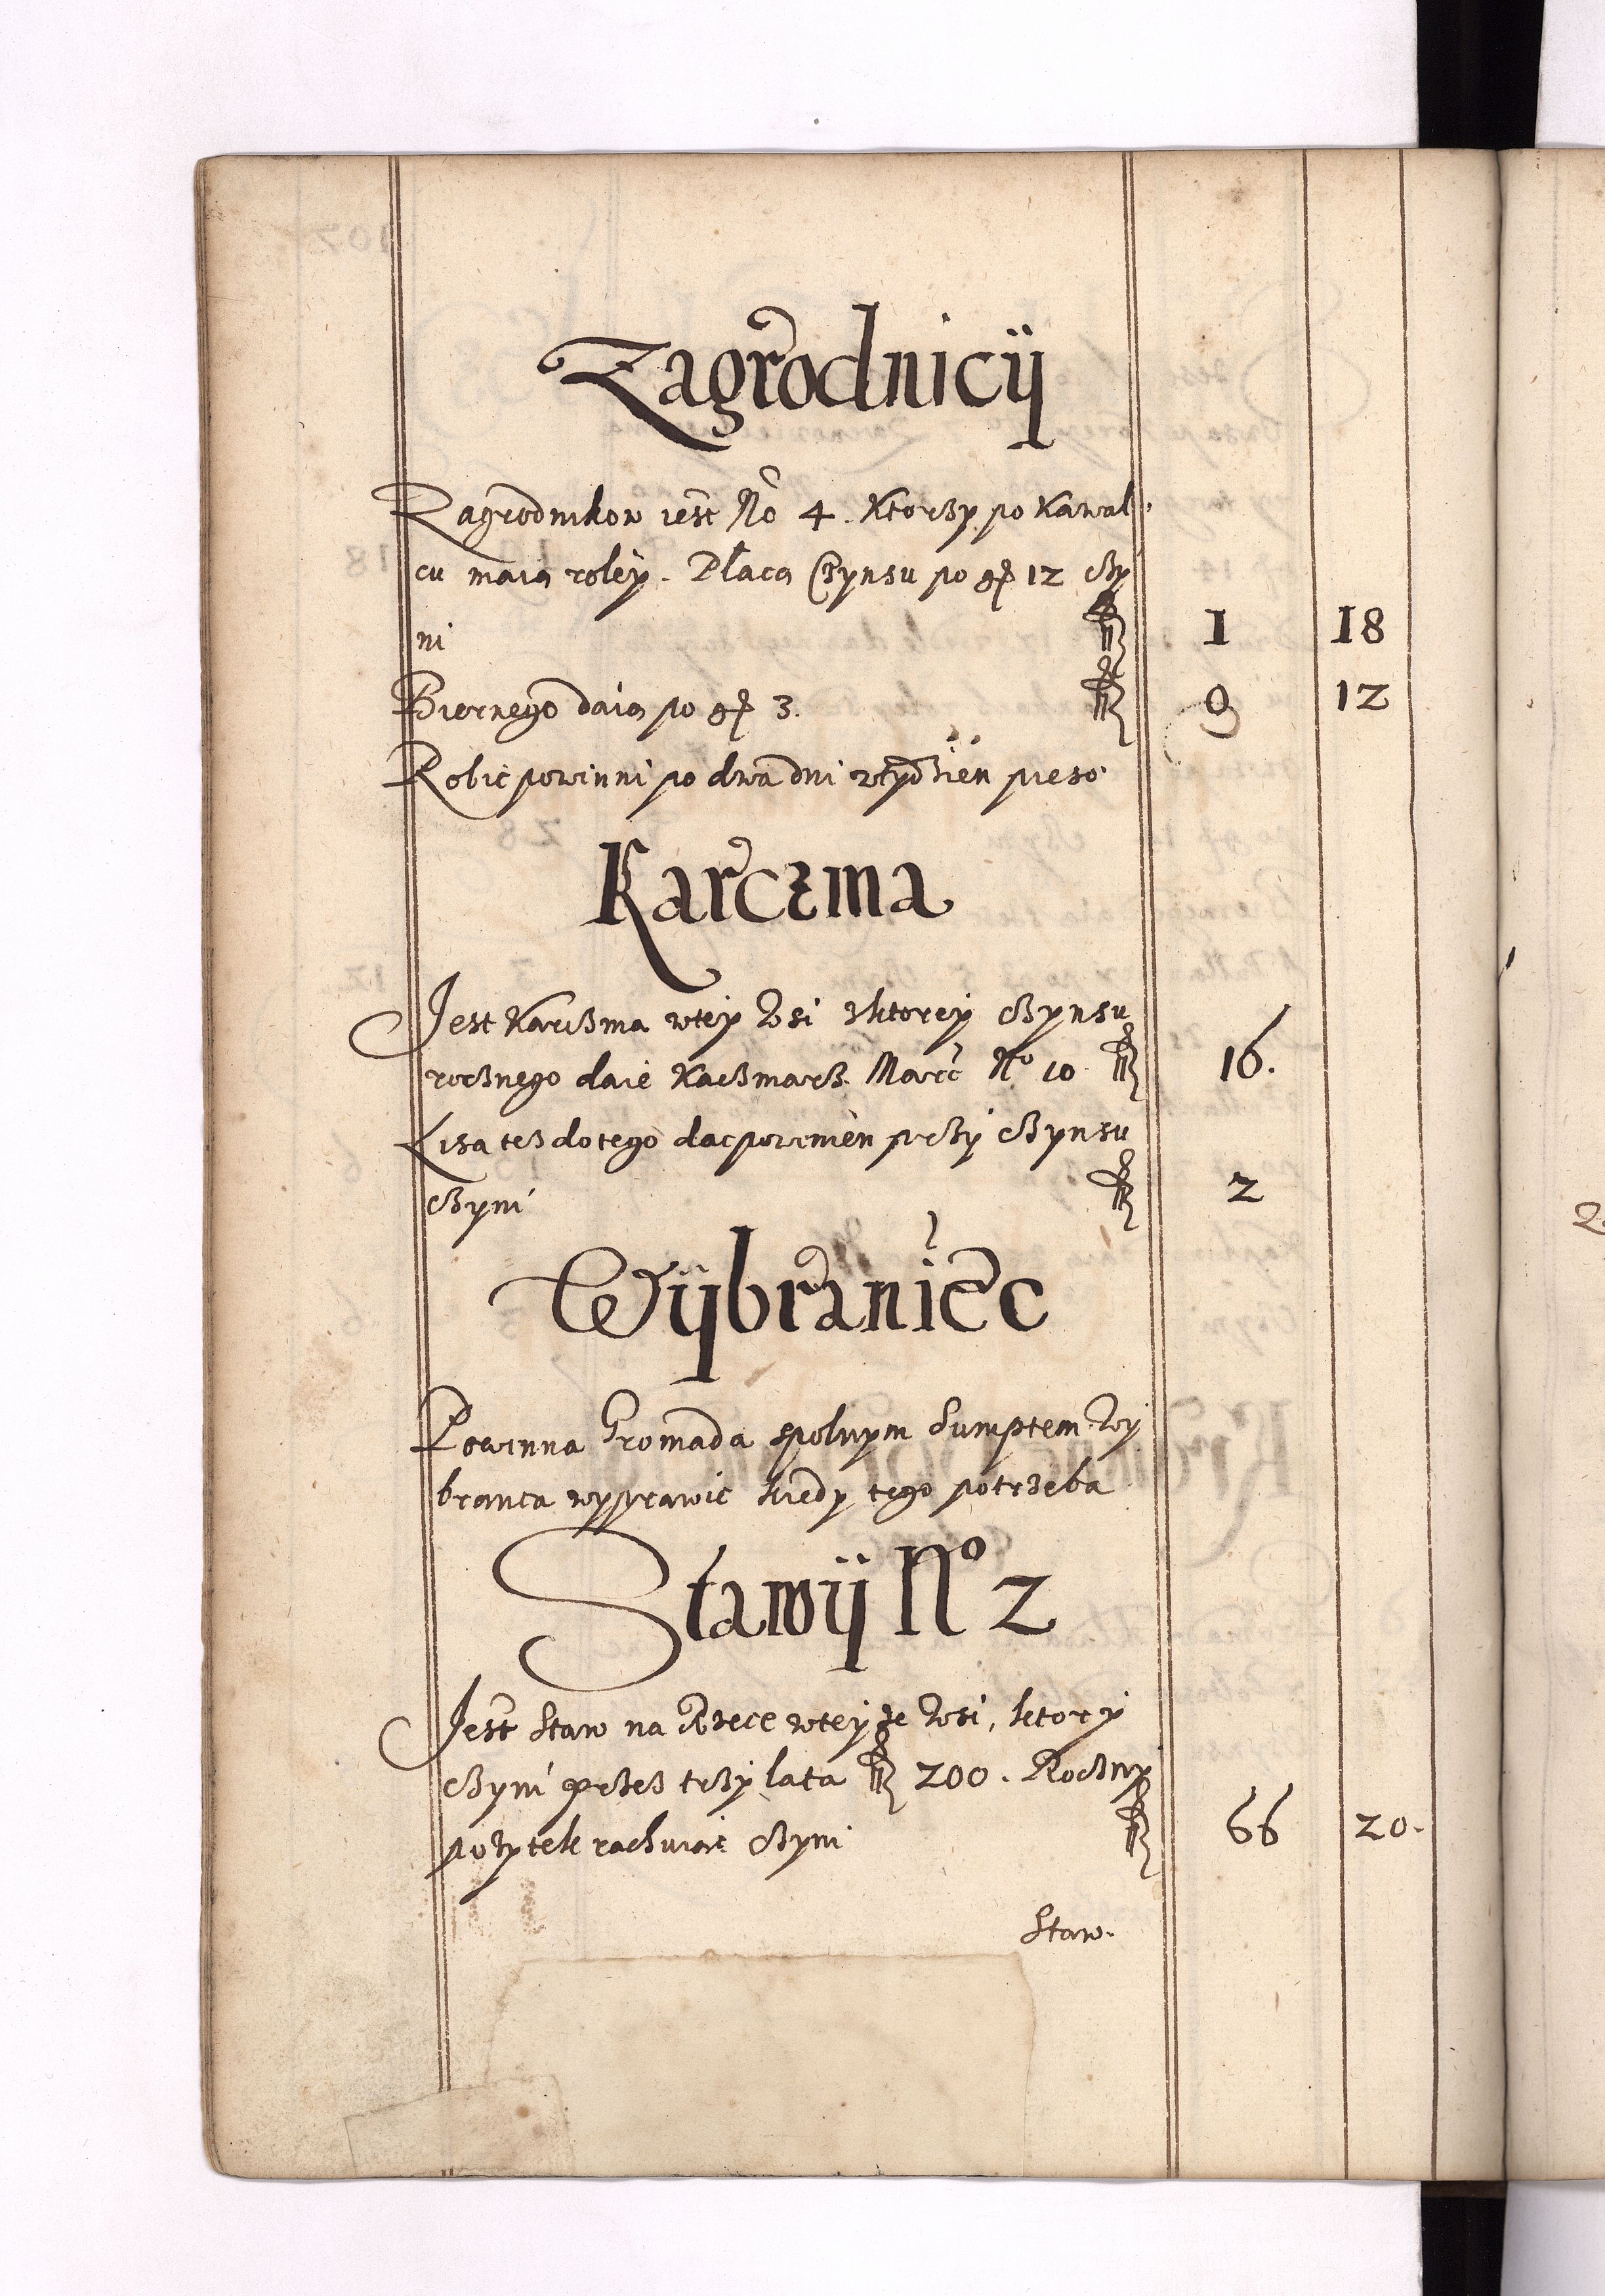 Zagrodnicÿ
Zagrodnikow iest No 4. Ktorzy po Kawal,
cu maią roley. Płacą Czynsu po gr 12 czy
ni fl 1 18
Biernego daią po gr 3. fl 0 12
Robic powinni po dwa dni wtydzien pieso.
Karczma
Jest Karczma wtey Wsi zktorey Czynsu
rocznego daie Kaczmarz Marc No 10 fl 16.
Lisa tez do tego dac powinien przy Czynsu
czyni fl 2
Wÿbraniec
Powinna Gromada spolnym Sumptem Wy
branca wyprawic kiedy tego potrzeba
Stawÿ No 2
Jest Staw na Rzece wteyze Wsi, ktory
czyni przez trzy lata fl 200. Roczny
pozytek rachuiąc Czyni fl 66 20.
Staw.